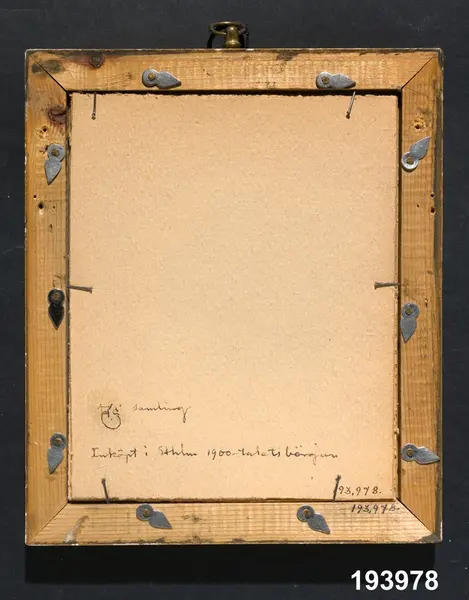 samling
Inköpt i Sthlm 1900-talets början
193,978.
193,978.
193978